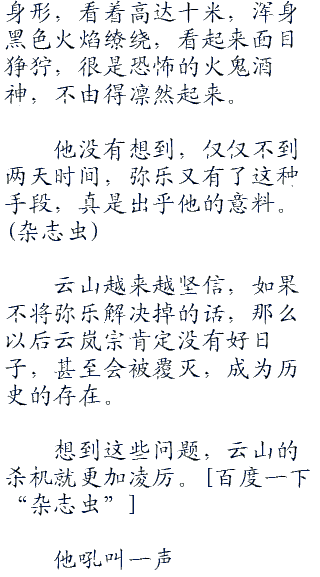 身形，看着高达十米，浑身
黑色火焰缭绕，看起来面目
狰狞，很是恐怖的火鬼酒
神，不由得凛然起来。
他没有想到，仅仅不到
两天时间，弥乐又有了这种
手段，真是出乎他的意料。
(杂志虫)
云山越来越坚信，如果
不将弥乐解决掉的话，那么
以后云岚宗肯定没有好日
子，甚至会被覆灭，成为历
史的存在。
想到这些问题，云山的
杀机就更加凌厉。[百度一下
“杂志虫”]
他吼叫一声